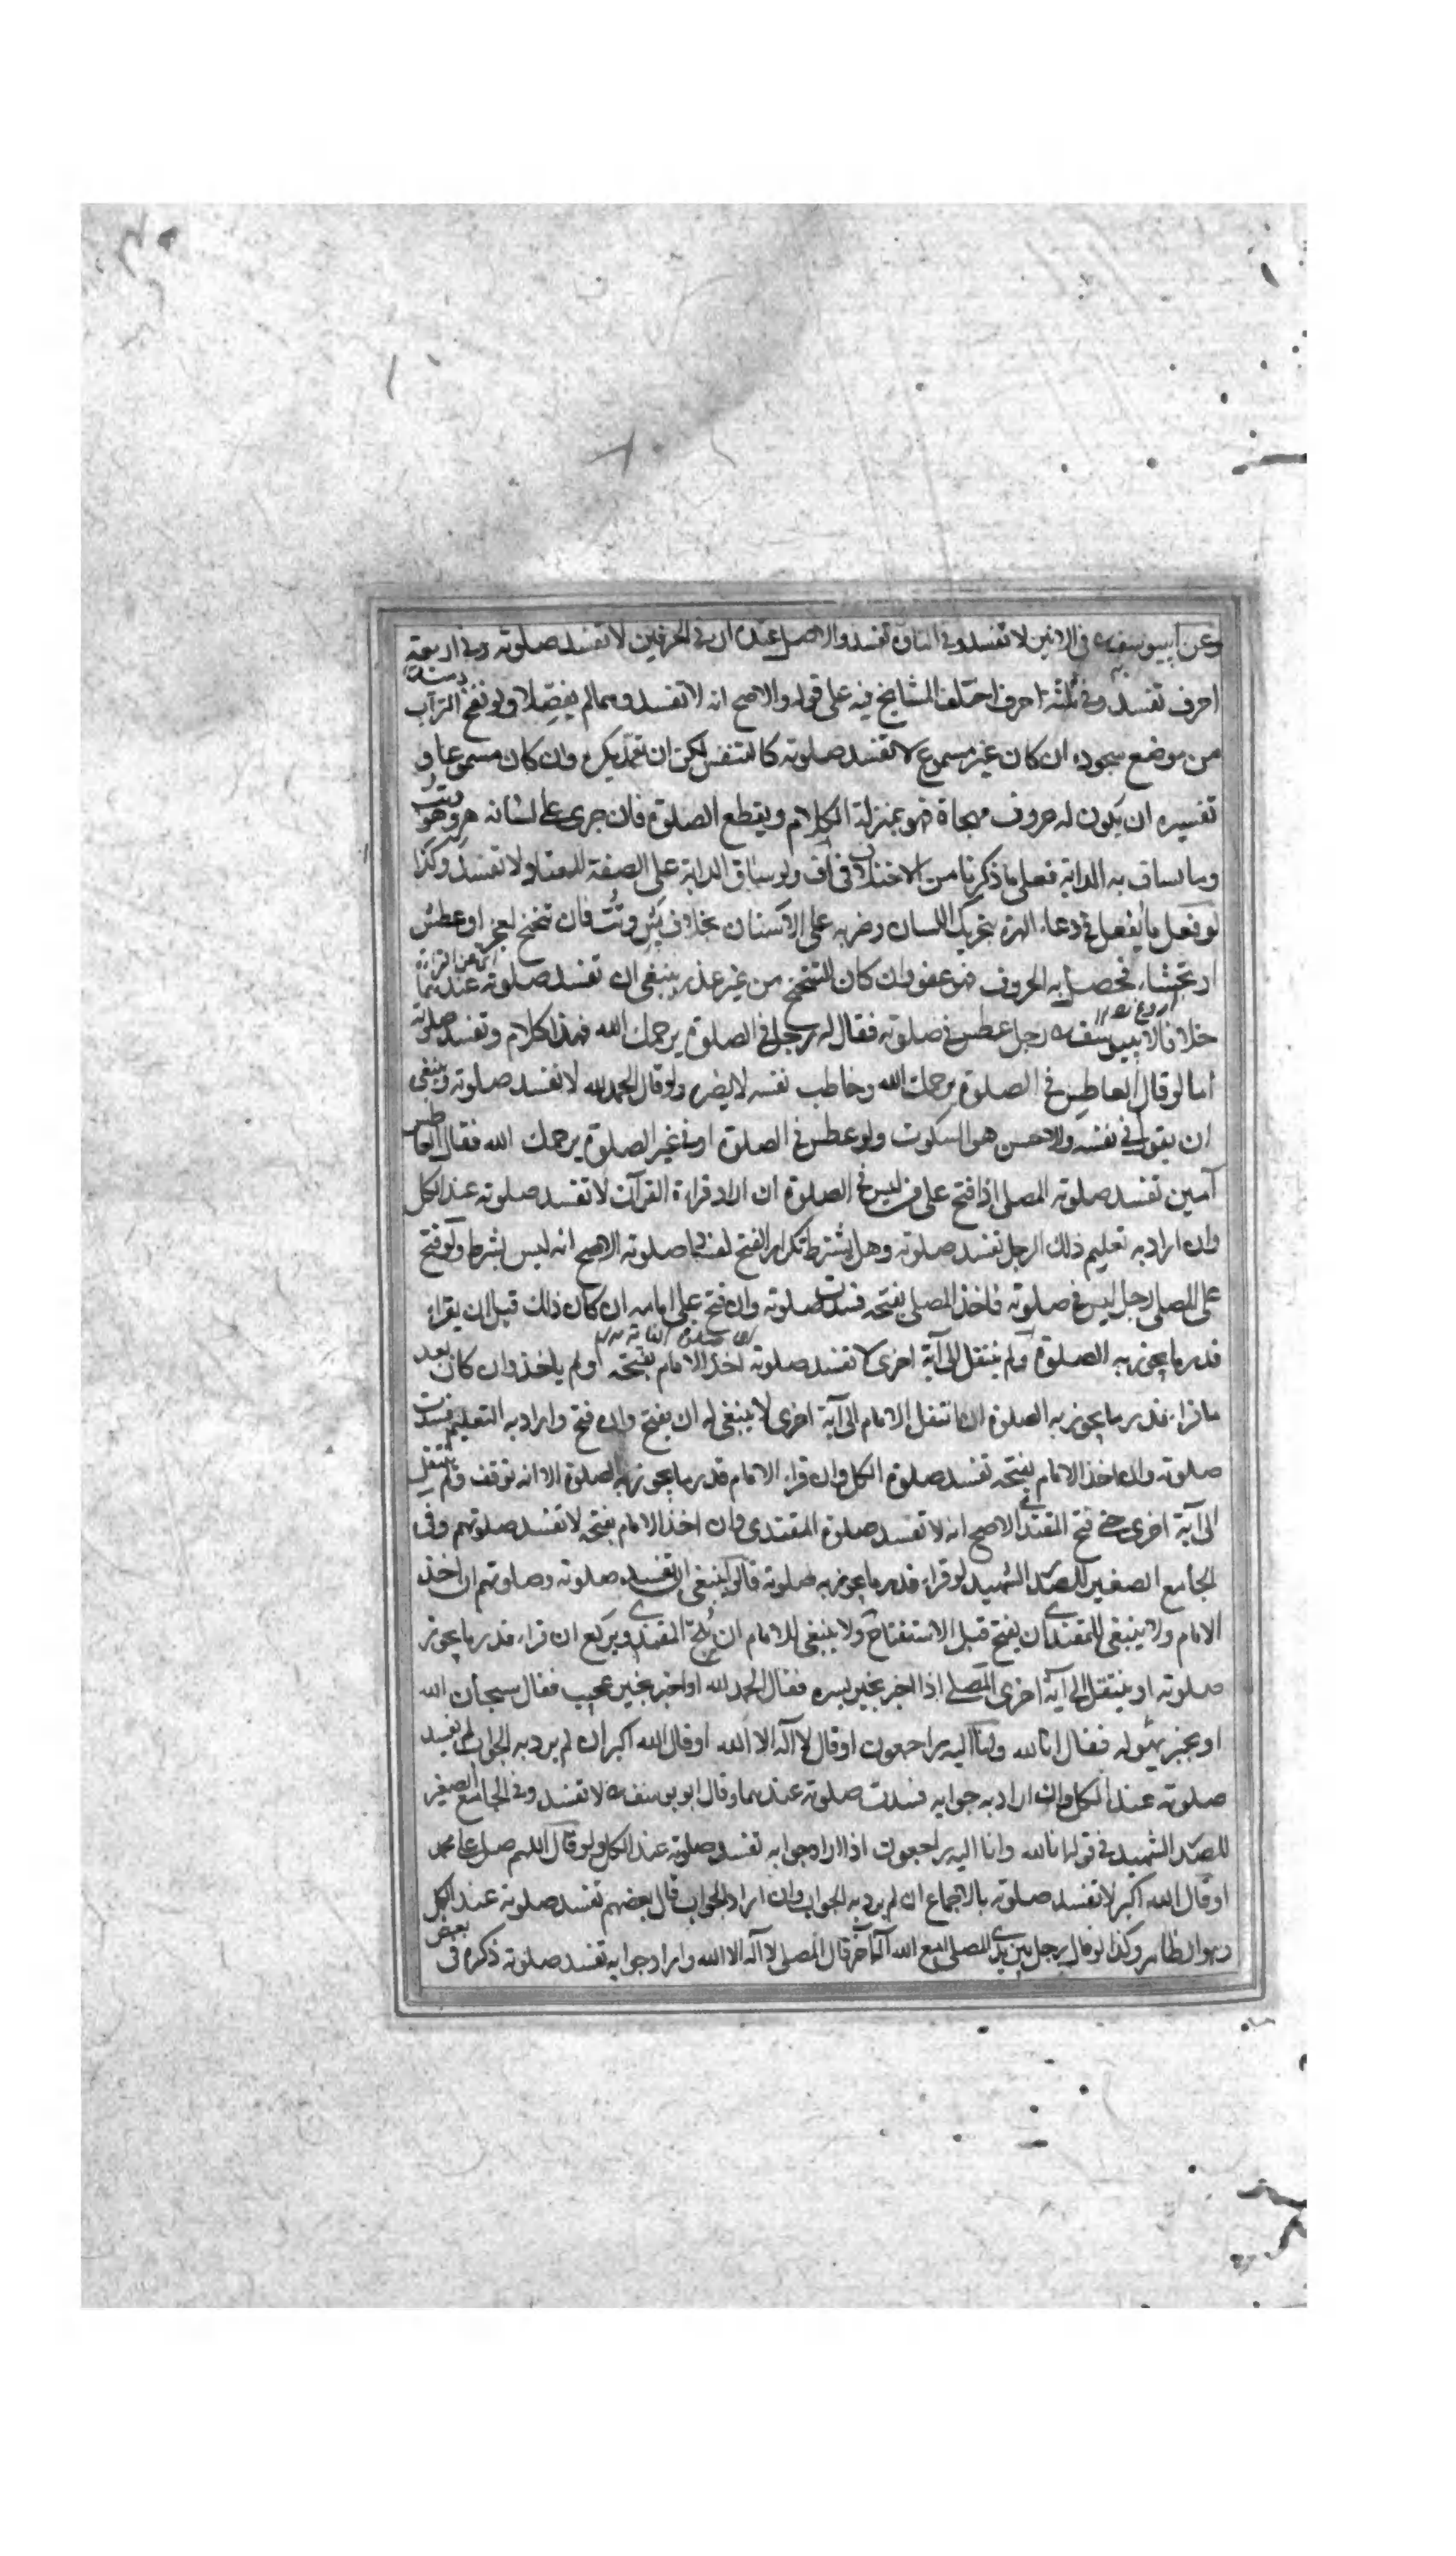 وعن ابييوسف ره في الانين لا تفسد وفي التاوّه تفسد والاصل عنده ان في الحرفين لا تفسد صلوته وفي اربعة
احرف تفسد وفي ثلثة احرف اختلف المشايخ فيه على قوله والاصح انه لا تفسد وهما لم يفصّلا ولو نفخ التراب
من موضع سجوده ان كان غير مسموع لا تفسد صلوته كالتنفس لكن ان تعمّد يكره وان كان مسموعا و
تفسيره ان يكون له حروف مهجاة فهو بمنزلة الكلام ويقطع الصلوة فان جرى على لسانه هر وهو
وما يساق به الدابة فعلى ما ذكرنا من الاختلاف في اف ولو ساق الدابة على الصفة المعتاد لا تفسد وكذا
لو فعل ما يفعل في دعاء الهرة بتحريك اللسان وضربه على الاسنان بخلاف فان تنحنح لعجز او عطس
او تجشاء فحصل به الحروف فهو عفو وان كان التنحنح من غير عذر ينبغي ان تفسد صلوته عندهما
خلافا لابييوسف ره رجل عطس في صلوته فقال له رجل في الصلوة يرحمك الله فهذا كلام وتفسد صلوته
اما لو قال العاطس في الصلوة يرحمك الله وخاطب نفسه لا يضره ولو قال الحمد لله لا تفسد صلوته وينبغي
ان يقول في نفسه والاحسن هو السكوت ولو عطس في الصلوة او في غير الصلوة يرحمك الله فقال العاطس
آمين تفسد صلوته المصلي اذا فتح على من ليس في الصلوة ان اراد قراءة القرآن لا تفسد صلوته عند الكل
وان اراد به تعليم ذلك الرجل تفسد صلوته وهل يشترط تكرار الفتح لفساد صلوته الاصح انه ليس بشرط ولو فتح
على المصلي رجل ليس في صلوته فاخذ المصلي بفتحه فسدت صلوته وان فتح على امامه ان كان ذلك قبل ان يقراء
قدر ما يجوز به الصلوة ولم ينتقل الى آية اخرى لا تفسد صلوته اخذ الامام بفتحه او لم ياخذ وان كان بعد
ما قراء قدر ما يجوز به الصلوة ان انتقل الامام الى آية اخرى لا ينبغي له ان يفتح وان فتح واراد به التعليم فسدت
صلوته وان اخذ الامام بفتحه تفسد صلوة الكل وان قراء الامام قدر ما يجوز به الصلوة الا انه توقف ولم ينتقل
الى آية اخرى حتى فتح المقتدي الاصح انه لا تفسد صلوة المقتدي وان اخذ الامام بفتحه لا تفسد صلوتهم وفي
الجامع الصغير للصدر الشهيد لو قراء قدر ما يجوز به صلوته قالوا ينبغي ان تفسد صلوته وصلوتهم ان اخذ
الامام ولا ينبغي للمقتدي ان يفتح قبل الاستفتاح ولا ينبغي للامام ان يلجئ المقتدي ويركع ان قراء قدر ما يجوز
صلوته او ينتقل الى آية اخرى المصلي اذا اخبر بخبر يسره فقال الحمد لله او اخبر بخبر عجيب فقال سبحان الله
او بخبر يهوله فقال انا لله وانا اليه راجعون او قال لا اله الا الله او قال الله اكبر ان لم يرد به الجواب لم تفسد
صلوته عند الكل وان اراد به جوابه فسدت صلوته عندهما وقال ابو يوسف ره لا تفسد وفي الجامع الصغير
للصدر الشهيد في قوله انا لله وانا اليه راجعون اذا اراد جوابه تفسد صلوته عند الكل ولو قال اللهم صل على محمد
او قال الله اكبر لا تفسد صلوته بالاجماع ان لم يرد به الجواب وان اراد الجواب قال بعضهم تفسد صلوته عند الكل
وهو الظاهر وكذا لو قال رجل بين يدي المصلي امع الله اله آخر قال المصلي لا اله الا الله واراد جوابه تفسد صلوته ذكره في بعض